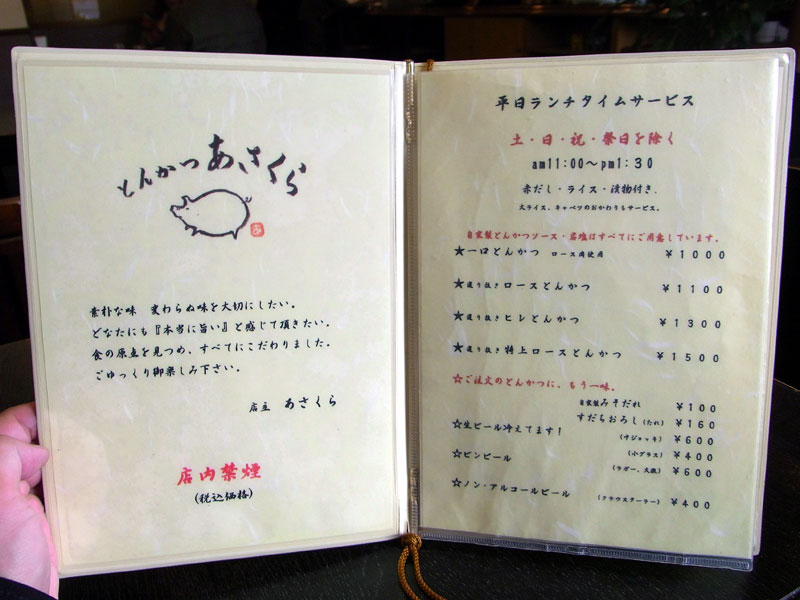 とんかつ あさくら
あ
素朴な味 変わらぬ味を大切にしたい。
どなたにも『本当に旨い』と感じて頂きたい。
食の原点を見つめ、すべてにこだわりました。
ごゆっくり御楽しみ下さい。
店主 あさくら
店内禁煙
(税込価格)
平日ランチタイムサービス
土・日・祝・祭日を除く
am11:00〜pm1:30
赤だし・ライス・漬物付き.
大ライス、キャベツのおかわりもサービス。
自家製とんかつソース・岩塩はすべてにご用意しています。
★一口とんかつ ロース肉使用 ¥1000
★選り抜き ロースとんかつ ¥1100
★選り抜き ヒレとんかつ ¥1300
★選り抜き 特上ロースとんかつ ¥1500
☆ご注文のとんかつに、もう一味。
自家製みそだれ ¥100
すだちおろし(たれ) ¥160
☆生ビール冷えてます! (中ジョッキ) ¥600
(小グラス) ¥400
☆ビンビール (ラガー、大瓶) ¥600
☆ノン・アルコールビール (クラウスターラー) ¥400